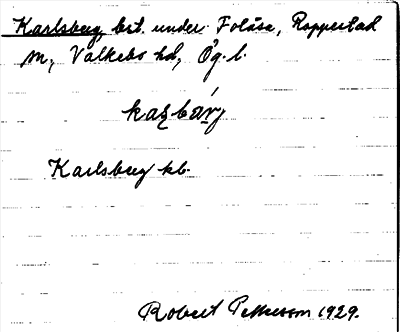 Karlsberg, bst. under Folåsa, Rappestad
sn, Valkebo hd, Ög. l.
kaʀ̣bærj
Karlsberg kb.
Robert Pettersson 1929.